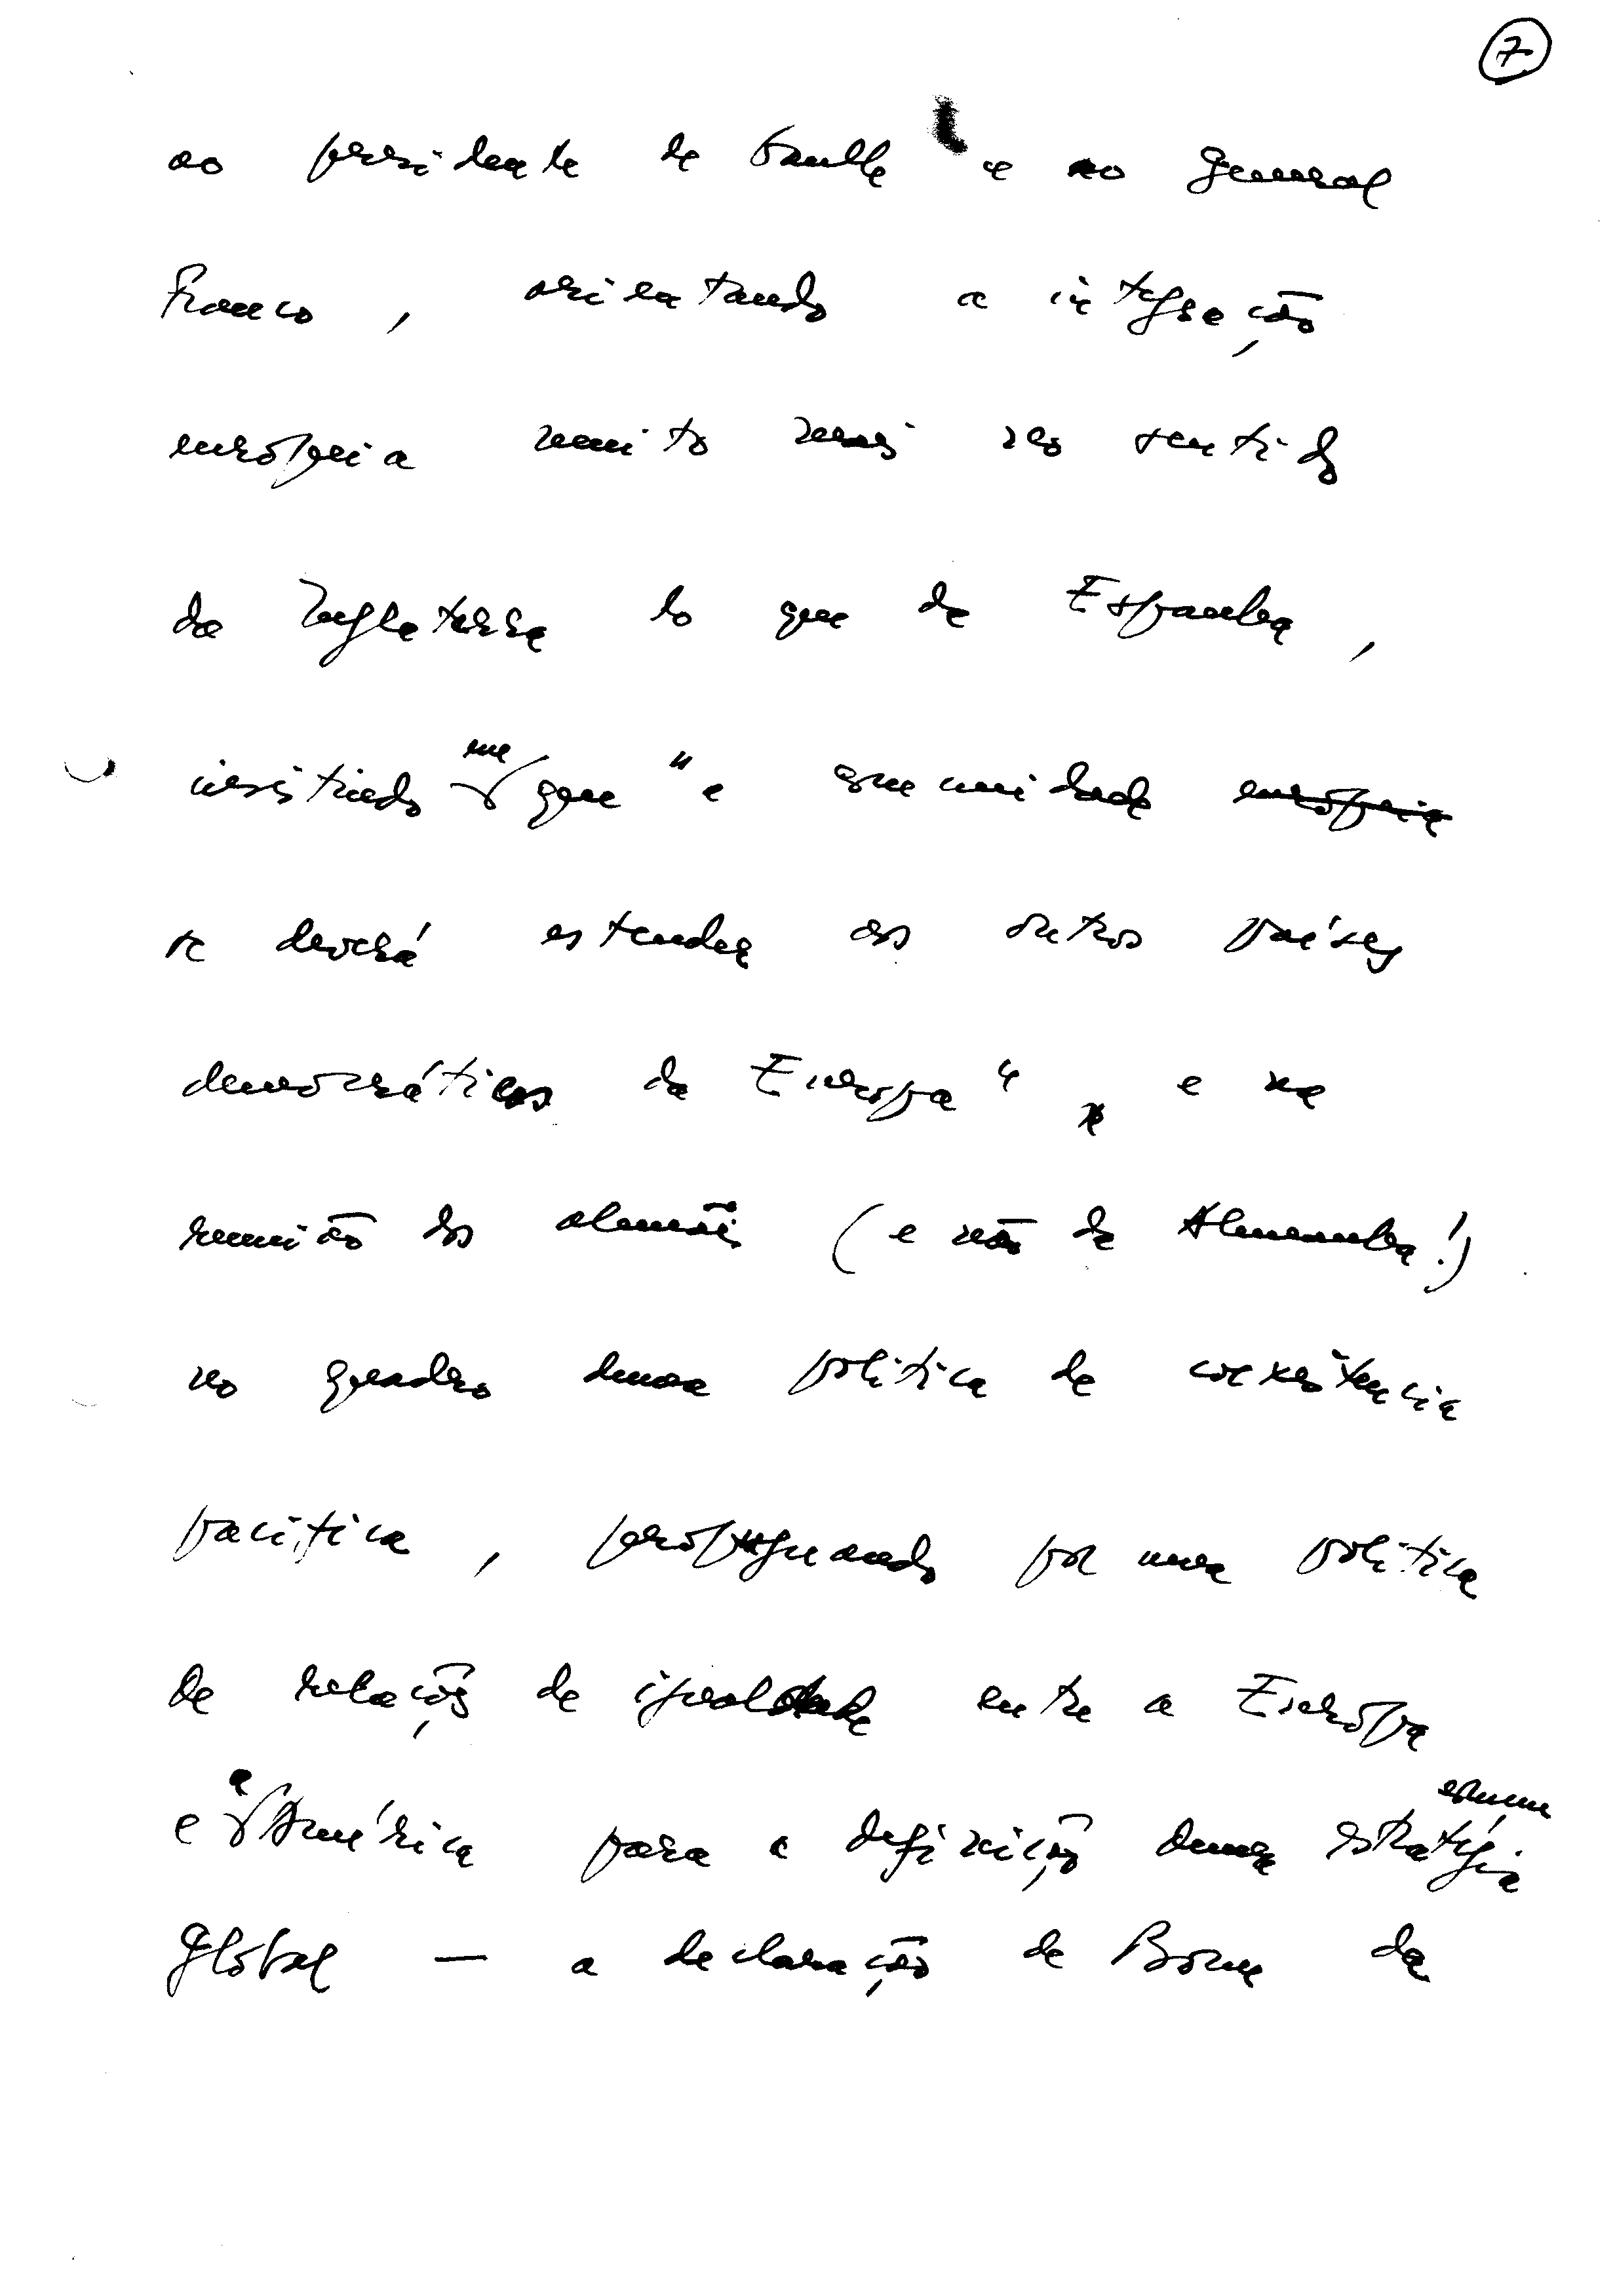 7
ao presidente de Gaulle e ao general
Franco, orientando a integração
europeia muito mais no sentido
da Inglaterra do que da Espanha,
insistindo em que "a comunidade europeia
se deverá estender aos outros países
democráticos da Europa" e na
reunião dos alemães (e não da Alemanha!)
no quadro duma política de coexistência
pacífica, propugnando por uma política
de relações de igualdade entre a Europa
e a América para a definição duma estratégia comum
global — a declaração de Bona da